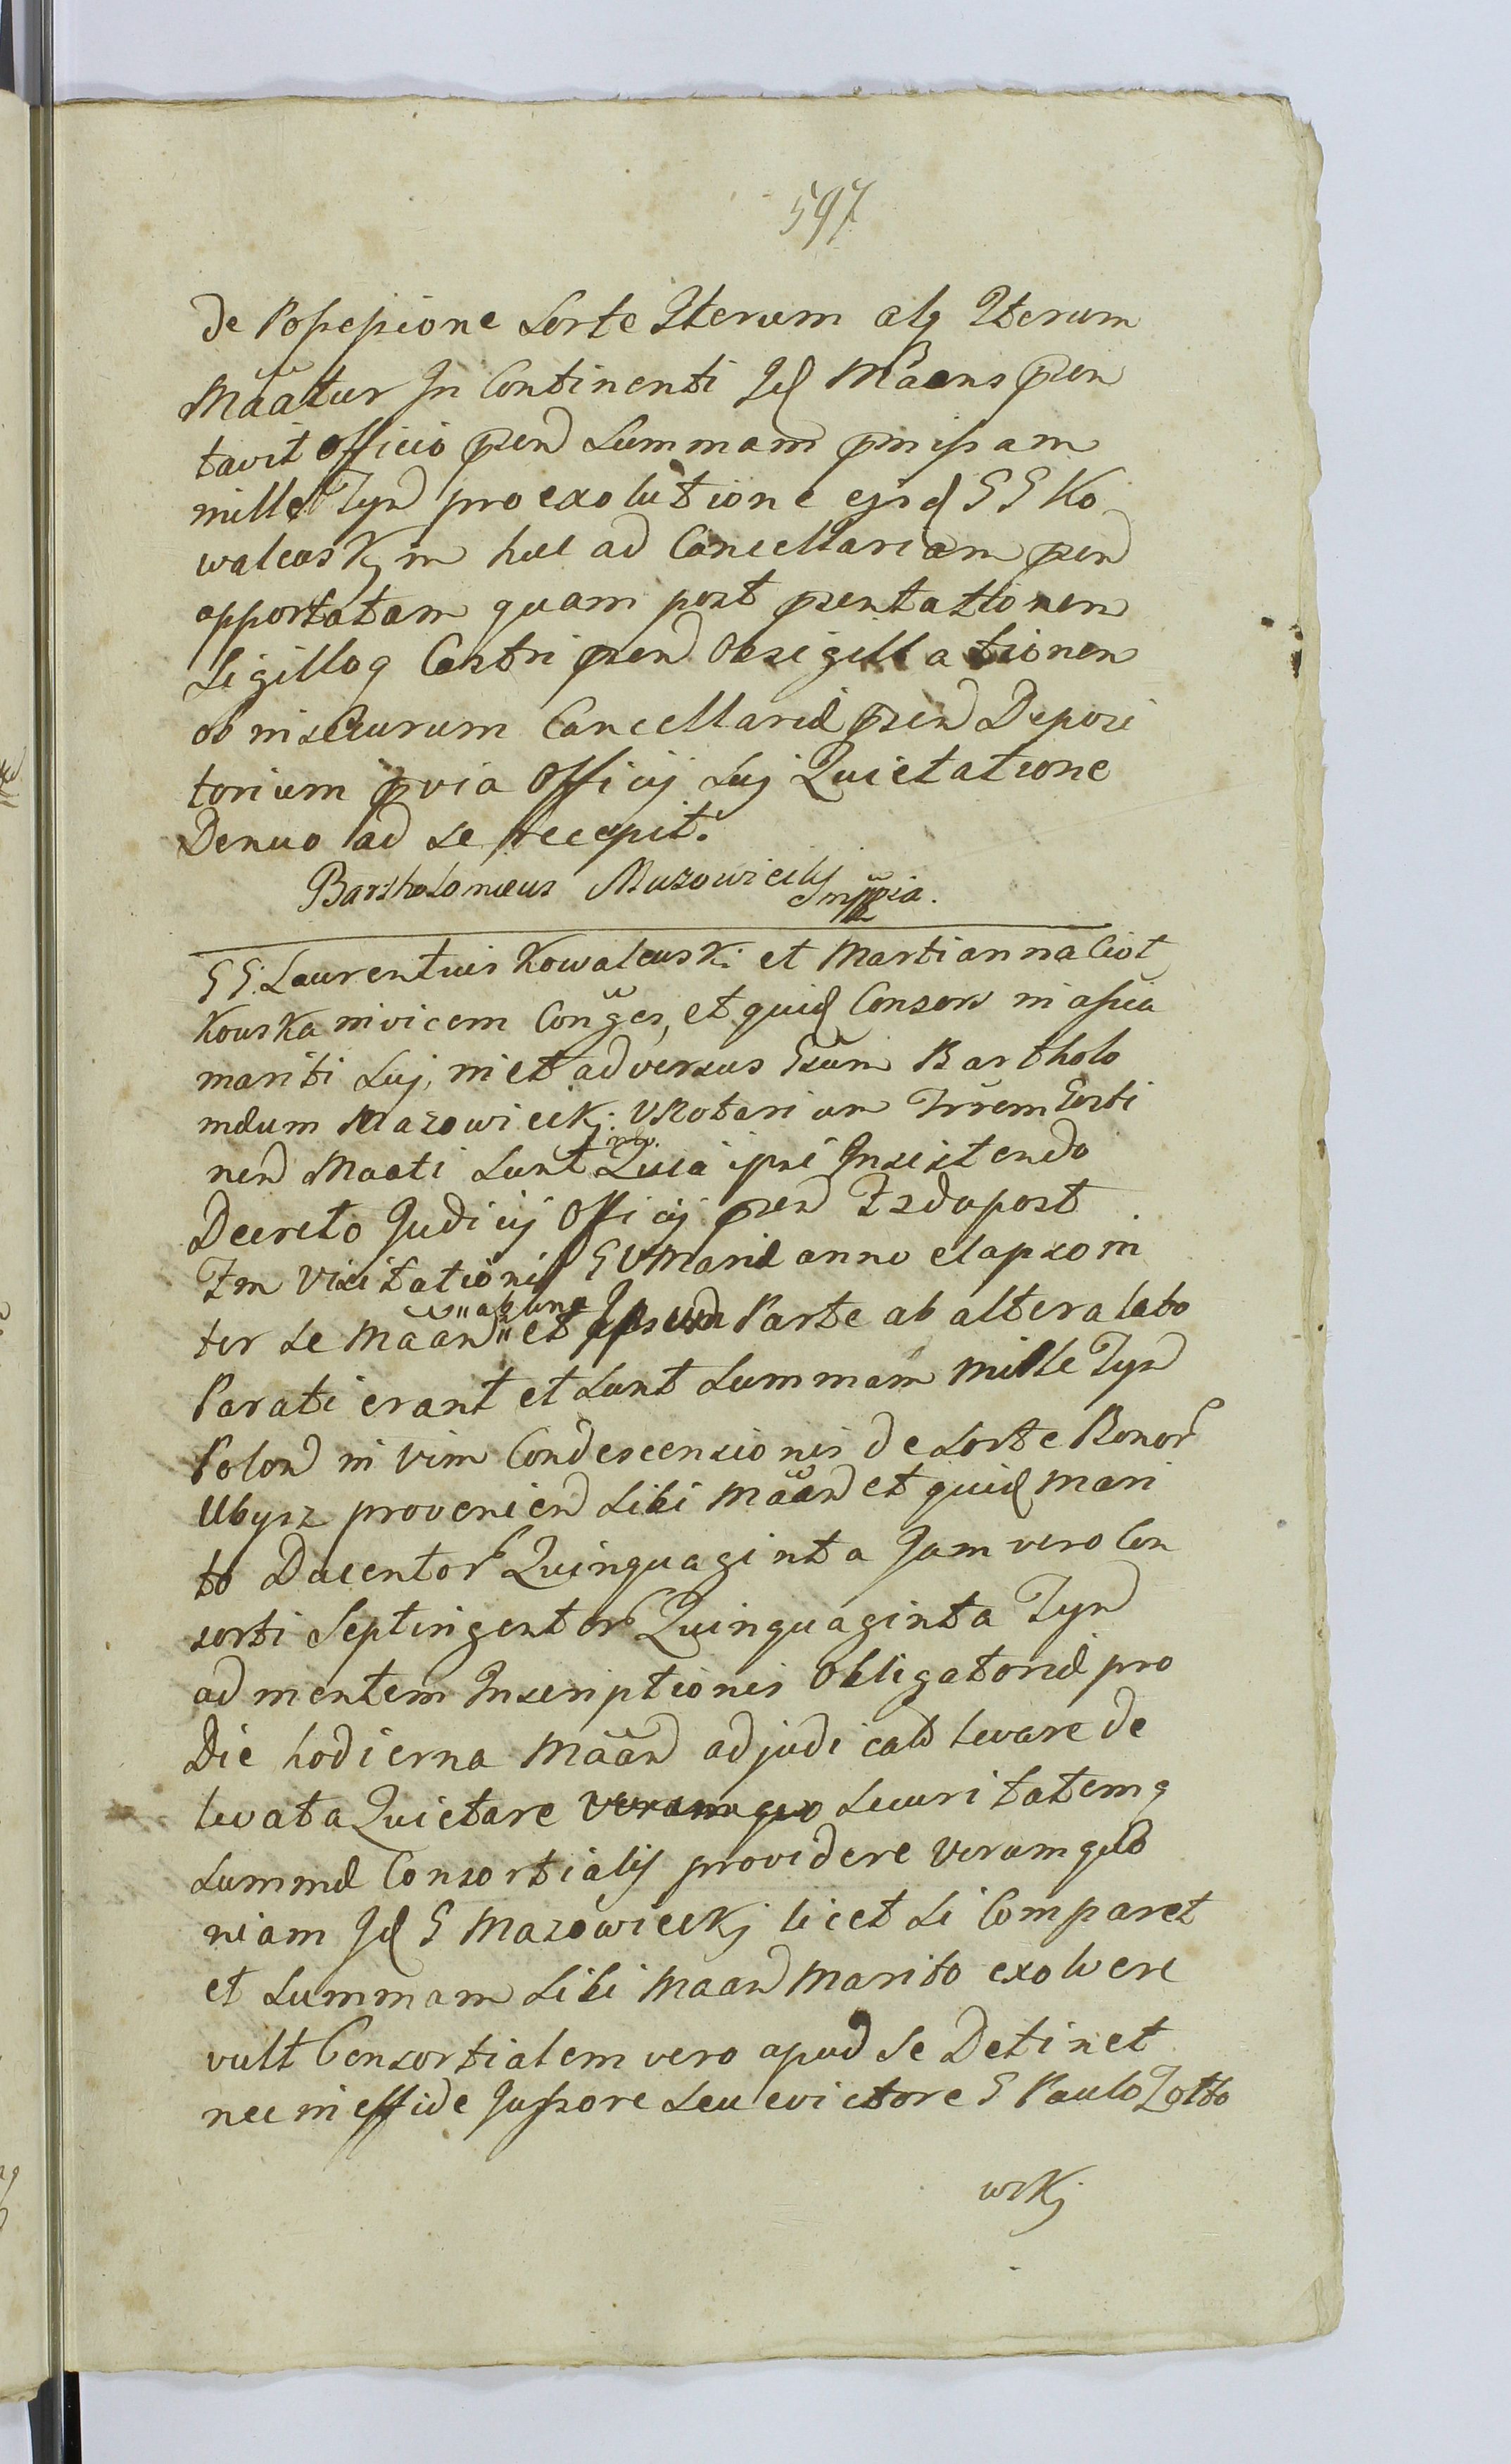 597
de Possessione Sorte Iterum atq Iterum
Māātur In Continenti Id Māāns prn
tavit officio prnt Summam prmissam
mille Tynf pro exolutione ejsd GG Ko
walewskj in huc ad Cancellariam prnt
apportatam quam post prntationem
Sigilloq Castri prnt Obsigillationem
ob insecurum Cancellariæ prnt Deposi
torium prvia Officij Suj Quietatione
Denuo ad se recepit.
Bartholomæus Mazowieckj mppria.
GG. Laurentius Kowalewski et Martianna Ciot
kowska invicem Conges, et quid Consors in assia
mariti Suj, in et adversus Gsum Bartholo
mæum Mazowieckj. VNotarium Trrem Gosti
nen Maati Sunt Quia ipsi Insistendo
Decreto Judicij Officij prnt Fsdo post
Fm Visitationis BVMariæ anno elapso in
ter se Māān et ab una Parte ab altera lato
Parati erant et Sunt Summam Mille Tynf
Polon in vim Condescensionis de Sorte Bonor
Ubysz provenien Sibi Māān et quid Mari
to Ducentor Quinquaginta Jam vero Con
sorti Septingentor Quinquaginta Tynf
ad mentem Inscriptionis Obligatoriæ pro
Die hodierna Māān adjudicat levare de
levata Quietare Securitatemq
Summæ Consortialis providere Verum quo
niam Id G Mazowieckj licet Si Comparet
et Summam Sibi Maan Marito exolvere
vult Consortialem vero apud Se Detinet
nec in effide Jussore Seu evictore G Paulo Zółto
wskj